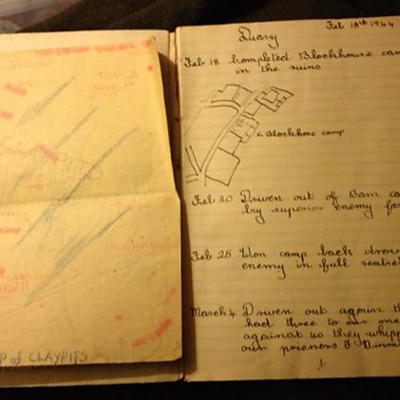 CLAYPITS
P OF CLAYPITS
Diary
Feb 18th 1944
Feb 18 Completed Blockhouse cam
in the ruins
Blockhose camp
Feb 20 Driven out of Barn ca
by superior enemy for
Feb 25 Won camp back drov
enemy in full retreat
March 4 Driven out again th
had three to our one
against us they whipp
our prisoners
1.